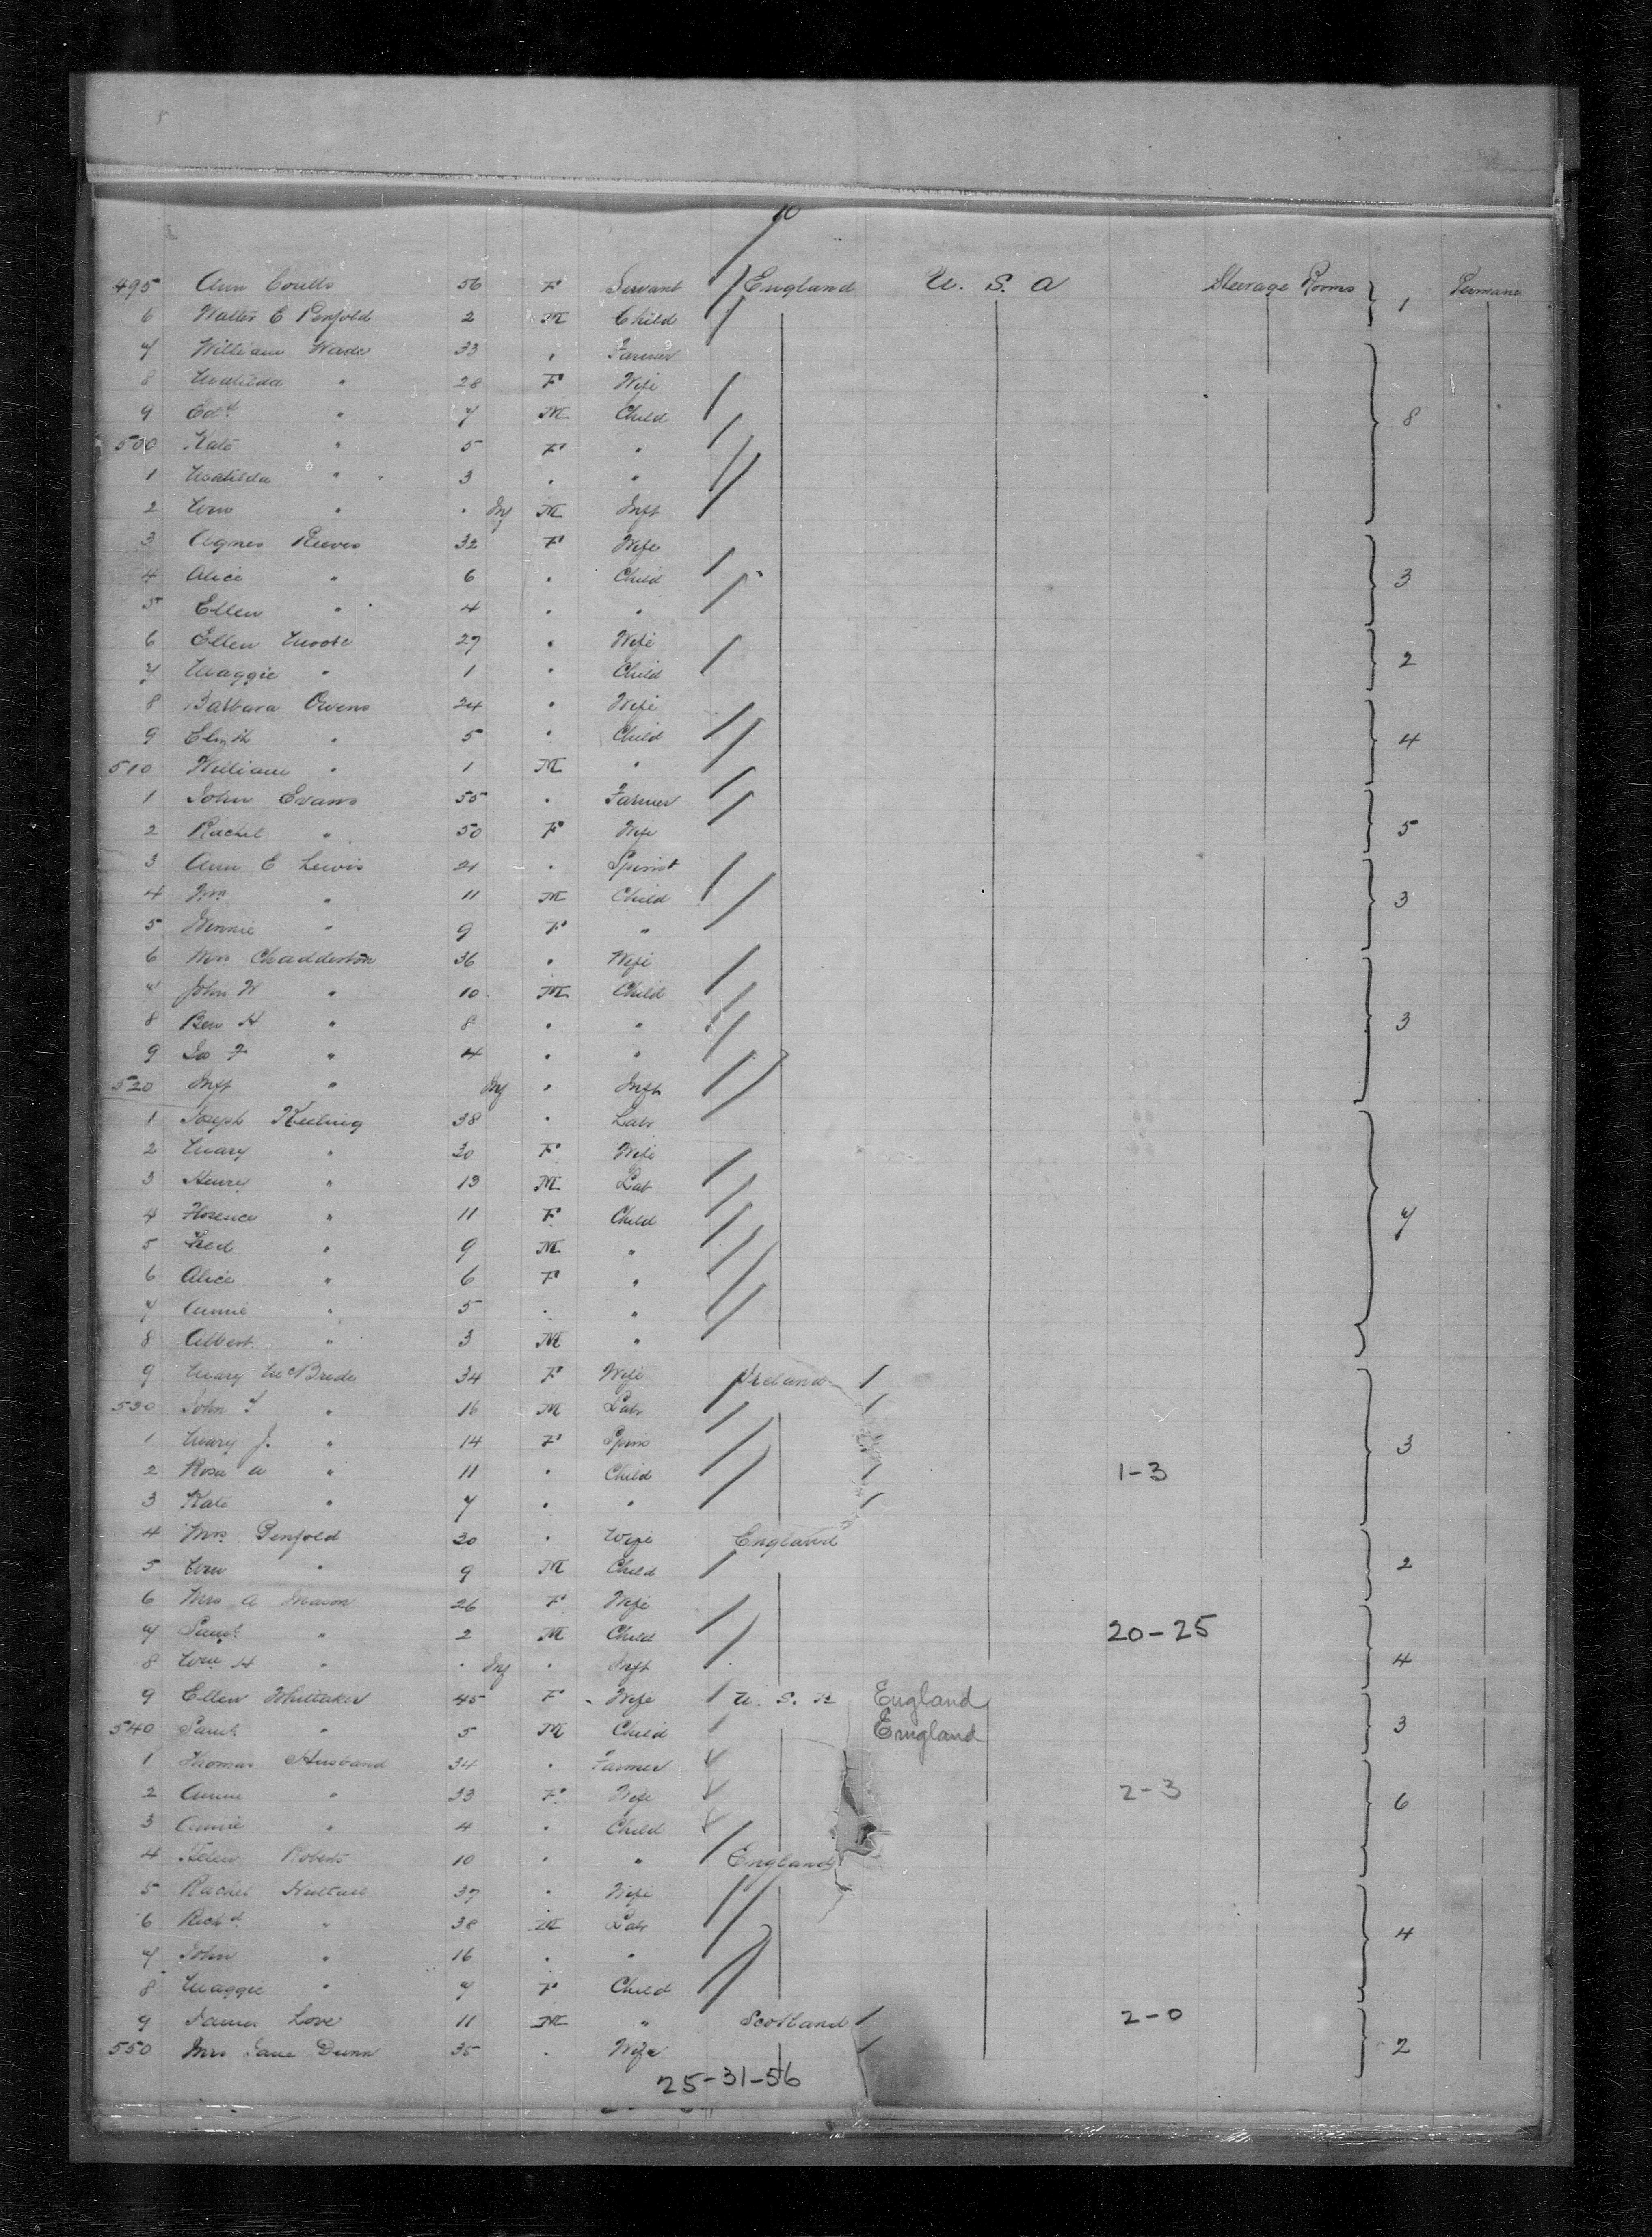 10
495 Ann Coutts 56 F Servant England U. S. A Steerage Rooms 1 Permane
6 Walter C Penfold 2 M Child
7 William Wade 33 " Farmer
8 Matilda " 28 F Wife
9 Edd " 7 M Child 8
500 Kate " 5 F "
1 Matilda " 3 " "
2 Wm " Inf M Inft
3 Agnes Reeves 32 F Wife
4 Alice " 6 " Child 3
5 Ellen " 4 " "
6 Ellen Moore 27 " Wife 2
7 Maggie " 1 " Child
8 Barbara Owens 24 " Wife
9 Elizth " 5 " Child 4
510 William " 1 M "
1 John Evans 55 " Farmer
2 Rachel " 50 F Wife 5
3 Ann E Lewis 21 " Spinst
4 Wm " 11 M Child 3
5 Winnie " 9 F "
6 Mrs Chadderton 36 " Wife
7 John W " 10 M Child
8 Ben H " 8 " " 3
9 Jas F " 4 " "
520 Inft " Inf " Inft
1 Joseph Keeling 38 " Labr
2 Mary " 30 F Wife
3 Henry " 13 M Lab
4 Florence " 11 F Child 7
5 Fred " 9 M "
6 Alice " 6 F "
7 Annie " 5 " "
8 Albert " 3 M "
9 Mary McBride 34 F Wife Ireland
530 John " 16 M Labr
1 Mary J. " 14 F Spins 3
2 Rosa A " 11 " Child 1-3
3 Kate " 7 " "
4 Mrs Penfold 30 " Wife England
5 Wm " 9 M Child 2
6 Mrs A Mason 26 F Wife
7 Saml " 2 M Child 20-25
8 Wm H " Inf " Inft 4
9 Ellen Whittaker 45 F Wife U. S. A England
540 Saml " 5 M Child England 3
1 Thomas Husband 34 " Farmer
2 Annie " 33 F Wife 2-3 6
3 Annie " 4 " Child
4 Helen Roberts 10 " " England
5 Rachel 37 " Wife
6 Richd " 38 M Labr 4
7 John " 16 " "
8 Maggie " 7 F Child
9 James Love 11 M " Scotland 2-0
550 Mrs Jane Dunn 35 " Wife 2
25-31-56